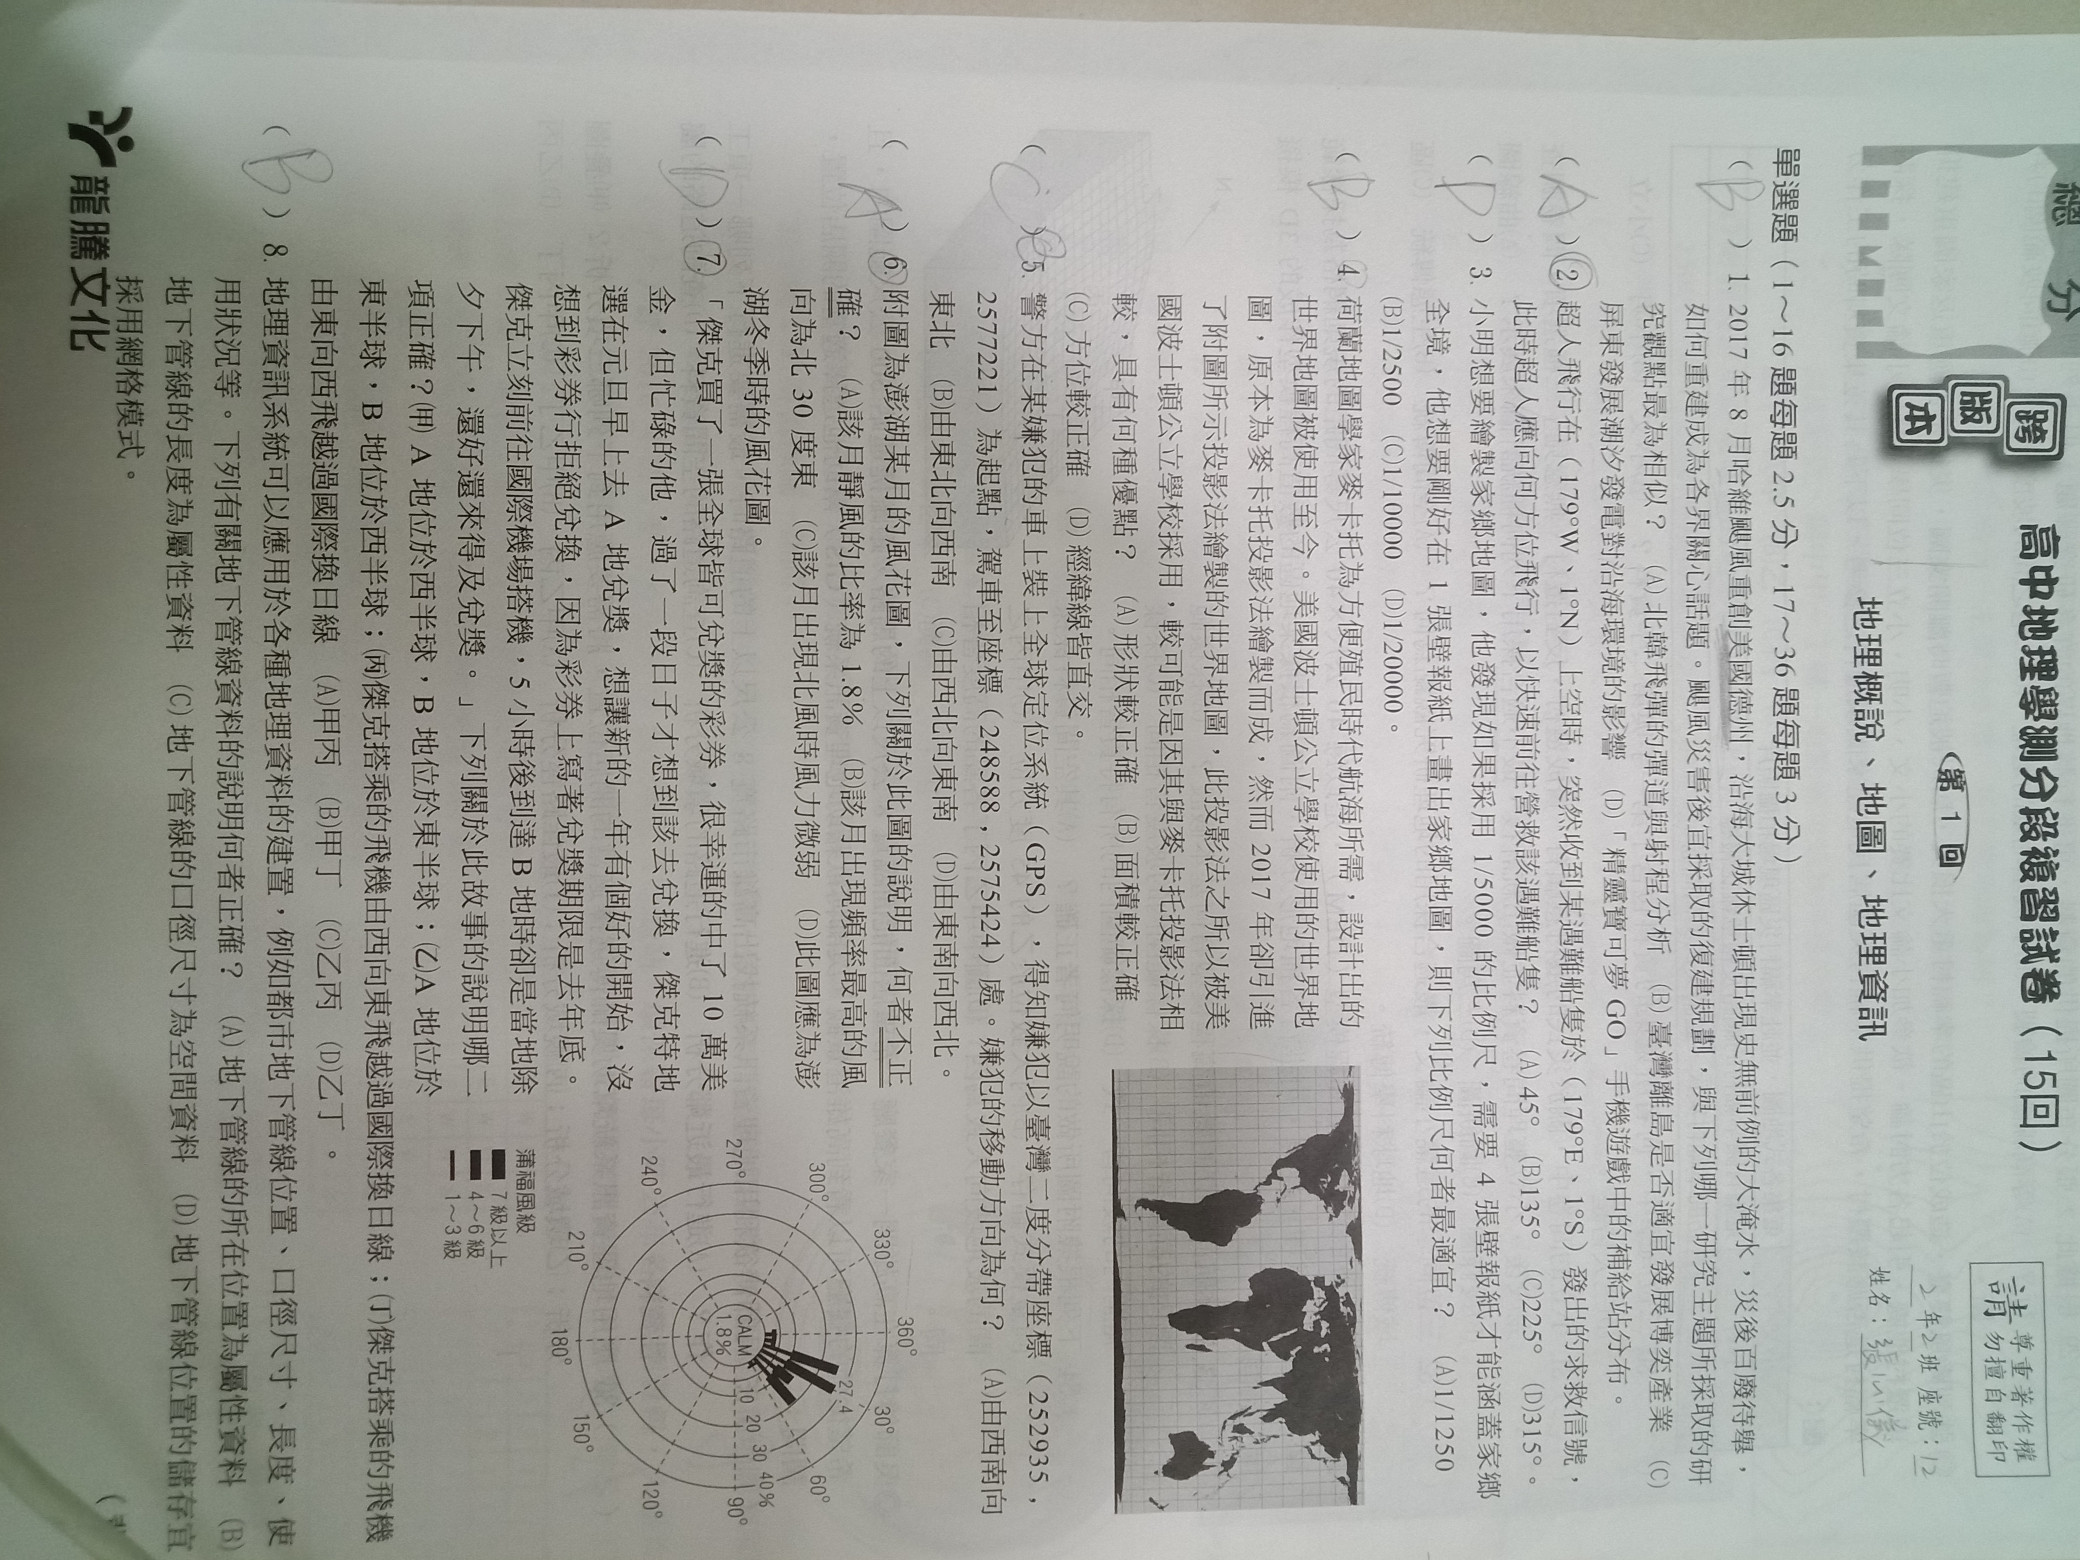 總分
跨版本
高中地理學測分段複習試卷(15回)
第1回
地理概說、地圖、地理資訊
請尊重著作權
勿擅自翻印
2年2班 座號:12
姓名:
單選題(1~16題每題2.5分,17~36題每題3分)
( B ) 1. 2017年8月哈維颶風重創美國德州,沿海大城休士頓出現史無前例的大淹水,災後百廢待舉,
如何重建成為各界關心話題。颶風災害後宜採取的復建規劃,與下列哪一研究主題所採取的研
究觀點最為相似? (A)北韓飛彈的彈道與射程分析 (B)臺灣離島是否適宜發展博奕產業 (C)
屏東發展潮汐發電對沿海環境的影響 (D)「精靈寶可夢GO」手機遊戲中的補給站分布。
( A ) 2. 超人飛行在(179°W、1°N)上空時,突然收到某遇難船隻於(179°E、1°S)發出的求救信號,
此時超人應向何方位飛行,以快速前往營救該遇難船隻? (A)45° (B)135° (C)225° (D)315°。
( D ) 3. 小明想要繪製家鄉地圖,他發現如果採用1/5000的比例尺,需要4張壁報紙才能涵蓋家鄉
全境,他想要剛好在1張壁報紙上畫出家鄉地圖,則下列比例尺何者最適宜? (A)1/1250
(B)1/2500 (C)1/10000 (D)1/20000。
( B ) 4. 荷蘭地圖學家麥卡托為方便殖民時代航海所需,設計出的
世界地圖被使用至今。美國波士頓公立學校使用的世界地
圖,原本為麥卡托投影法繪製而成,然而2017年卻引進
了附圖所示投影法繪製的世界地圖,此投影法之所以被美
國波士頓公立學校採用,較可能是因其與麥卡托投影法相
較,具有何種優點? (A)形狀較正確 (B)面積較正確
(C)方位較正確 (D)經緯線皆直交。
( C ) 5. 警方在某嫌犯的車上裝上全球定位系統(GPS),得知嫌犯以臺灣二度分帶座標(252935,
2577221)為起點,駕車至座標(248588,2575424)處。嫌犯的移動方向為何? (A)由西南向
東北 (B)由東北向西南 (C)由西北向東南 (D)由東南向西北。
( A ) 6. 附圖為澎湖某月的風花圖,下列關於此圖的說明,何者不正
確? (A)該月靜風的比率為1.8% (B)該月出現頻率最高的風
向為北30度東 (C)該月出現北風時風力微弱 (D)此圖應為澎
湖冬季時的風花圖。
( D ) 7. 「傑克買了一張全球皆可兌獎的彩券,很幸運的中了10萬美
金,但忙碌的他,過了一段日子才想到該去兌換,傑克特地
選在元旦早上去A地兌獎,想讓新的一年有個好的開始,沒
想到彩券行拒絕兌換,因為彩券上寫著兌獎期限是去年底。
傑克立刻前往國際機場搭機,5小時後到達B地時卻是當地除
夕下午,還好還來得及兌獎。」下列關於此故事的說明哪二
項正確?(甲)A地位於西半球,B地位於東半球;(乙)A地位於
東半球,B地位於西半球;(丙)傑克搭乘的飛機由西向東飛越過國際換日線;(丁)傑克搭乘的飛機
由東向西飛越過國際換日線 (A)甲丙 (B)甲丁 (C)乙丙 (D)乙丁。
( B ) 8. 地理資訊系統可以應用於各種地理資料的建置,例如都市地下管線位置、口徑尺寸、長度、使
用狀況等。下列有關地下管線資料的說明何者正確? (A)地下管線的所在位置為屬性資料 (B)
地下管線的長度為屬性資料 (C)地下管線的口徑尺寸為空間資料 (D)地下管線位置的儲存宜
採用網格模式。
360°
30°
60°
90°
120°
150°
180°
210°
240°
270°
300°
330°
CALM
1.8%
10 20 30 40%
27.4
蒲福風級
7級以上
4~6級
1~3級
龍騰文化